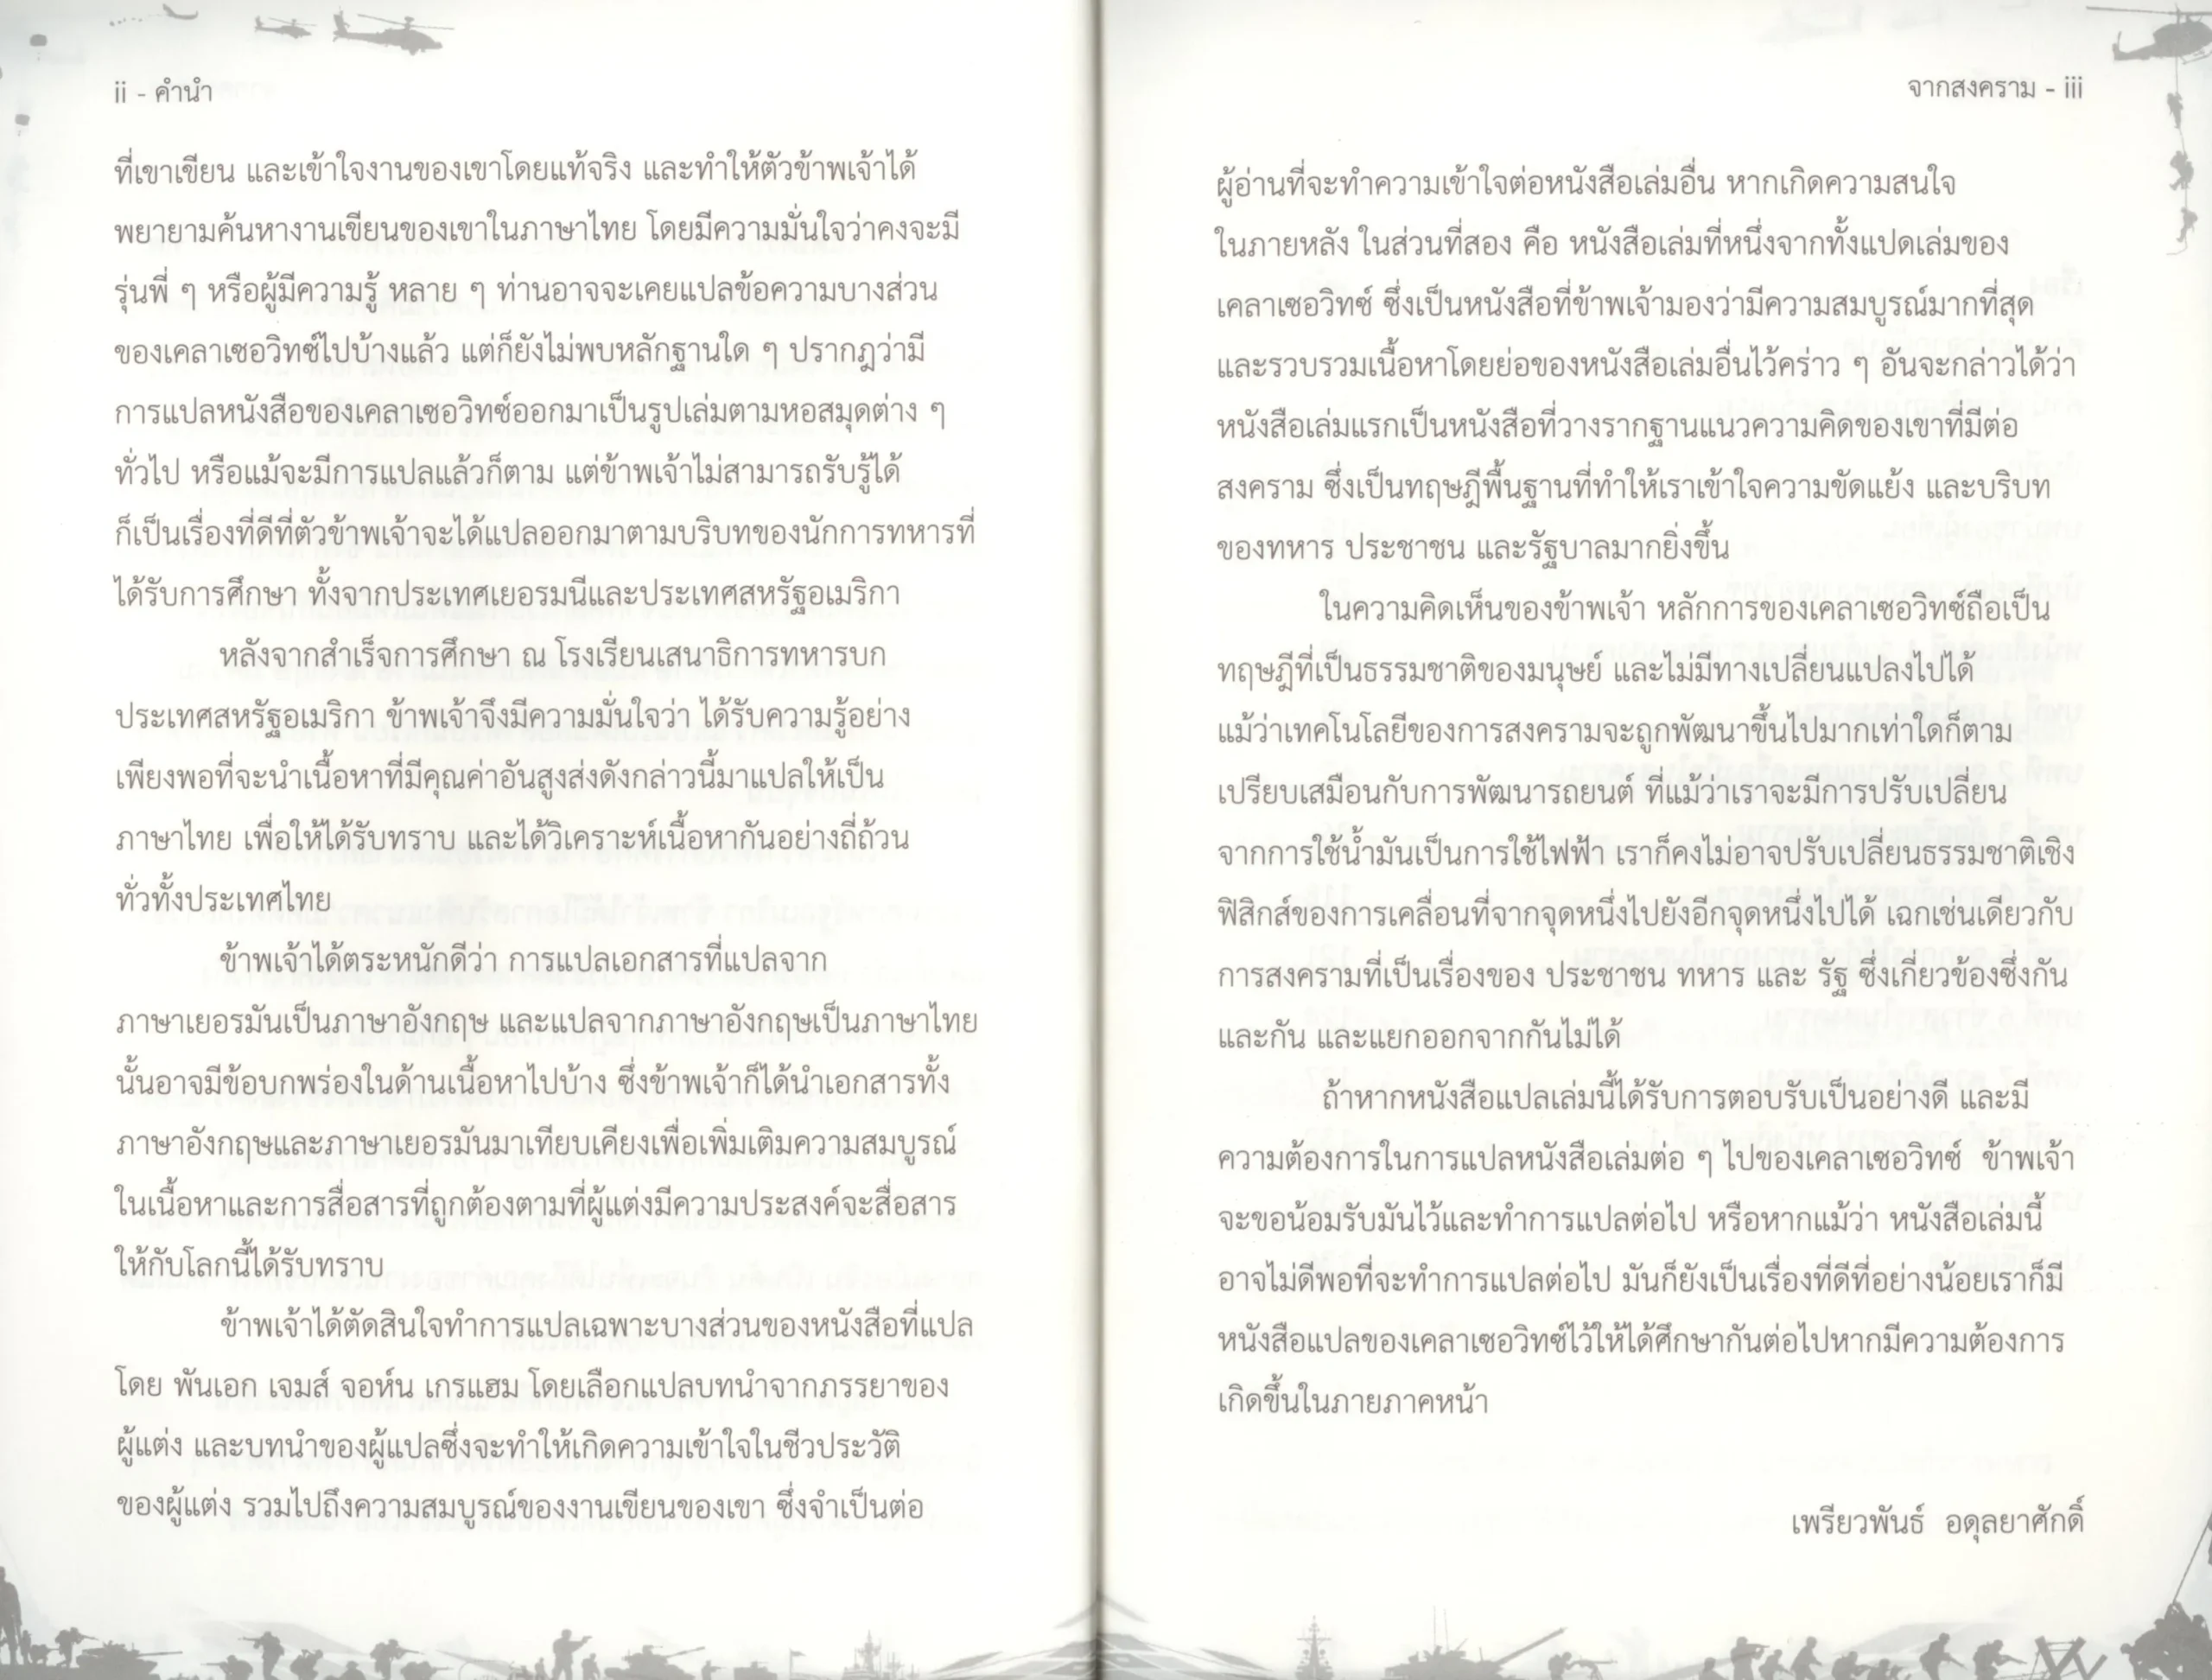 ii - คำนำ
ที่เขาเขียน และเข้าใจงานของเขาโดยแท้จริง และทำให้ตัวข้าพเจ้าได้
พยายามค้นหางานเขียนของเขาในภาษาไทย โดยมีความมั่นใจว่าคงจะมี
รุ่นพี่ ๆ หรือผู้มีความรู้ หลาย ๆ ท่านอาจจะเคยแปลข้อความบางส่วน
ของเคลาเซอวิทซ์ไปบ้างแล้ว แต่ก็ยังไม่พบหลักฐานใด ๆ ปรากฎว่ามี
การแปลหนังสือของเคลาเซอวิทซ์ออกมาเป็นรูปเล่มตามหอสมุดต่าง ๆ
ทั่วไป หรือแม้จะมีการแปลแล้วก็ตาม แต่ข้าพเจ้าไม่สามารถรับรู้ได้
ก็เป็นเรื่องที่ดีที่ตัวข้าพเจ้าจะได้แปลออกมาตามบริบทของนักการทหารที่
ได้รับการศึกษา ทั้งจากประเทศเยอรมนีและประเทศสหรัฐอเมริกา
หลังจากสำเร็จการศึกษา ณ โรงเรียนเสนาธิการทหารบก
ประเทศสหรัฐอเมริกา ข้าพเจ้าจึงมีความมั่นใจว่า ได้รับความรู้อย่าง
เพียงพอที่จะนำเนื้อหาที่มีคุณค่าอันสูงส่งดังกล่าวนี้มาแปลให้เป็น
ภาษาไทย เพื่อให้ได้รับทราบ และได้วิเคราะห์เนื้อหากันอย่างถี่ถ้วน
ทั่วทั้งประเทศไทย
ข้าพเจ้าได้ตระหนักดีว่า การแปลเอกสารที่แปลจาก
ภาษาเยอรมันเป็นภาษาอังกฤษ และแปลจากภาษาอังกฤษเป็นภาษาไทย
นั้นอาจมีข้อบกพร่องในด้านเนื้อหาไปบ้าง ซึ่งข้าพเจ้าก็ได้นำเอกสารทั้ง
ภาษาอังกฤษและภาษาเยอรมันมาเทียบเคียงเพื่อเพิ่มเติมความสมบูรณ์
ในเนื้อหาและการสื่อสารที่ถูกต้องตามที่ผู้แต่งมีความประสงค์จะสื่อสาร
ให้กับโลกนี้ได้รับทราบ
ข้าพเจ้าได้ตัดสินใจทำการแปลเฉพาะบางส่วนของหนังสือที่แปล
โดย พันเอก เจมส์ จอห์น เกรแฮม โดยเลือกแปลบทนำจากภรรยาของ
ผู้แต่ง และบทนำของผู้แปลซึ่งจะทำให้เกิดความเข้าใจในชีวประวัติ
ของผู้แต่ง รวมไปถึงความสมบูรณ์ของงานเขียนของเขา ซึ่งจำเป็นต่อ
จากสงคราม - iii
ผู้อ่านที่จะทำความเข้าใจต่อหนังสือเล่มอื่น หากเกิดความสนใจ
ในภายหลัง ในส่วนที่สอง คือ หนังสือเล่มที่หนึ่งจากทั้งแปดเล่มของ
เคลาเซอวิทซ์ ซึ่งเป็นหนังสือที่ข้าพเจ้ามองว่ามีความสมบูรณ์มากที่สุด
และรวบรวมเนื้อหาโดยย่อของหนังสือเล่มอื่นไว้คร่าว ๆ อันจะกล่าวได้ว่า
หนังสือเล่มแรกเป็นหนังสือที่วางรากฐานแนวความคิดของเขาที่มีต่อ
สงคราม ซึ่งเป็นทฤษฎีพื้นฐานที่ทำให้เราเข้าใจความขัดแย้ง และบริบท
ของทหาร ประชาชน และรัฐบาลมากยิ่งขึ้น
ในความคิดเห็นของข้าพเจ้า หลักการของเคลาเซอวิทซ์ถือเป็น
ทฤษฎีที่เป็นธรรมชาติของมนุษย์ และไม่มีทางเปลี่ยนแปลงไปได้
แม้ว่าเทคโนโลยีของการสงครามจะถูกพัฒนาขึ้นไปมากเท่าใดก็ตาม
เปรียบเสมือนกับการพัฒนารถยนต์ ที่แม้ว่าเราจะมีการปรับเปลี่ยน
จากการใช้น้ำมันเป็นการใช้ไฟฟ้า เราก็คงไม่อาจปรับเปลี่ยนธรรมชาติเชิง
ฟิสิกส์ของการเคลื่อนที่จากจุดหนึ่งไปยังอีกจุดหนึ่งไปได้ เฉกเช่นเดียวกับ
การสงครามที่เป็นเรื่องของ ประชาชน ทหาร และ รัฐ ซึ่งเกี่ยวข้องซึ่งกัน
และกัน และแยกออกจากกันไม่ได้
ถ้าหากหนังสือแปลเล่มนี้ได้รับการตอบรับเป็นอย่างดี และมี
ความต้องการในการแปลหนังสือเล่มต่อ ๆ ไปของเคลาเซอวิทซ์ ข้าพเจ้า
จะขอน้อมรับมันไว้และทำการแปลต่อไป หรือหากแม้ว่า หนังสือเล่มนี้
อาจไม่ดีพอที่จะทำการแปลต่อไป มันก็ยังเป็นเรื่องที่ดีที่อย่างน้อยเราก็มี
หนังสือแปลของเคลาเซอวิทซ์ไว้ให้ได้ศึกษากันต่อไปหากมีความต้องการ
เกิดขึ้นในภายภาคหน้า
เพรียวพันธ์ อดุลยาศักดิ์